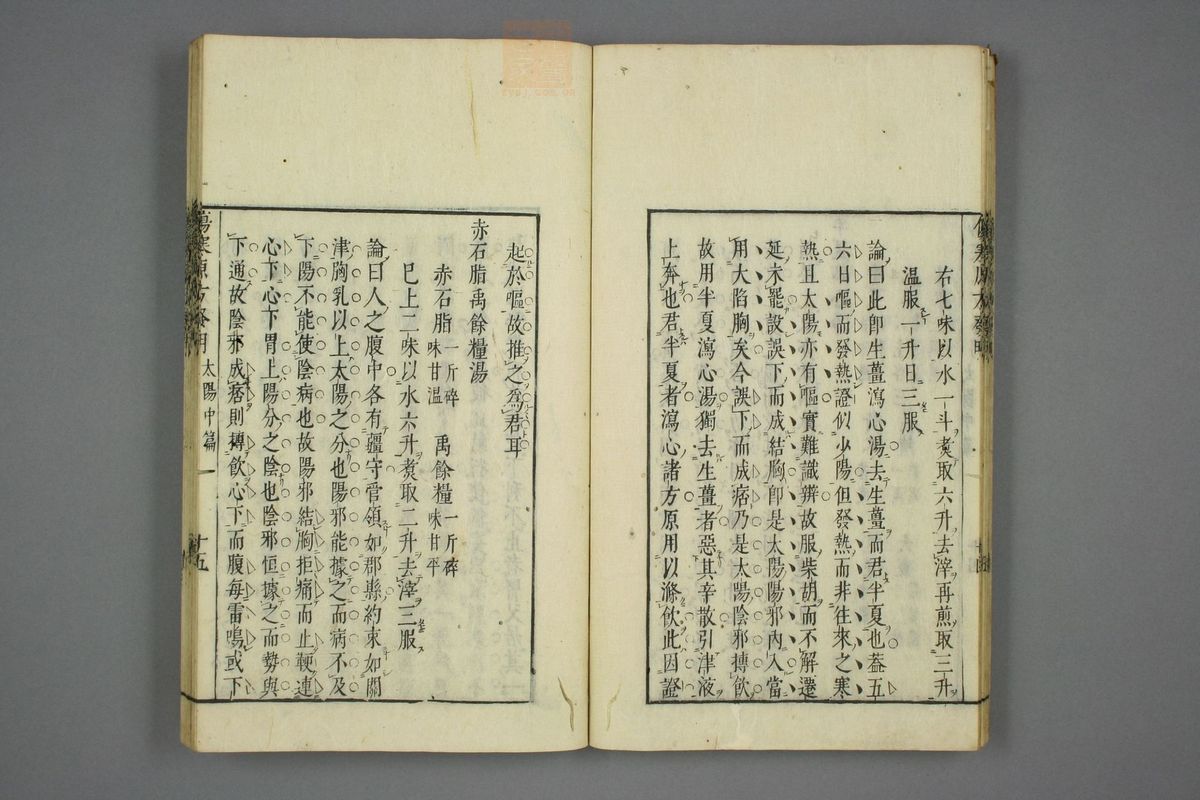 右七味以水一斗煑取六升去滓再煎取三升
温服一升日三服
論曰此卽生薑瀉心湯去生薑而君半夏也葢五
六日嘔而發熱證似少陽但發熱而非往來之寒
熱且太陽亦有嘔實難識辨故服柴胡而不解遷
延未罷設誤下而成結胸卽是太陽陽邪內入當
用大陷胸矣今誤下而成痞乃是太陽陰邪搏飲
故用半夏瀉心湯獨去生薑者惡其辛散引津液
上奔也君半夏者瀉心諸方原用以滌飲此因證
起於嘔故推之為君耳
赤石脂禹餘糧湯
赤石脂一斤碎味甘温 禹餘糧一斤碎味甘平
已上二味以水六升煑取二升去滓三服
論曰人之腹中各有疆守管領如郡縣約束如關
津胸乳以上太陽之分也陽邪能據之而病不及
下陽不能使陰病也故陽邪結胸拒痛而止鞕連
心下心下胃上陽分之陰也陰邪恒據之而勢與
下通故陰邪成痞則搏飲心下而腹每雷鳴或下
傷寒原方發明 太陽中篇 十五